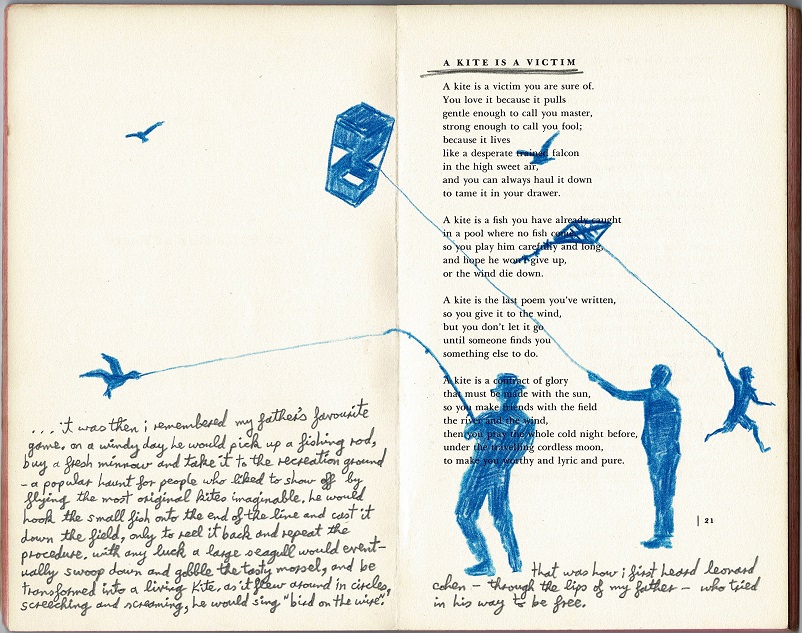 ...it was then i remembered my father's favourite
game. on a windy day, he would pick up a fishing rod,
buy a fresh minnow and take it to the recreation ground
- a popular haunt for people who liked to show off by
flying the most original kites imaginable. he would
hook the small fish onto the end of the line and cast it
down the field, only to reel it back and repeat the
procedure. with any luck a large seagull would event-
ually swoop down and gobble the tasty morsel, and be
transformed into a living kite. as it flew around in circles,
screeching and screaming, he would sing "bird on the wire".
A KITE IS A VICTIM
A kite is a victim you are sure of.
You love it because it pulls
gentle enough to call you master,
strong enough to call you fool;
because it lives
like a desperate trained falcon
in the high sweet air,
and you can always haul it down
to tame it in your drawer.
A kite is a fish you have already caught
in a pool where no fish come,
so you play him carefully and long,
and hope he won't give up,
or the wind die down.
A kite is the last poem you've written,
so you give it to the wind,
but you don't let it go
until someone finds you
something else to do.
A kite is a contract of glory
that must be made with the sun,
so you make friends with the field
the river and the wind,
then you pray the whole cold night before,
under the travelling cordless moon,
to make you worthy and lyric and pure.
| 21
that was how i first heard leonard
cohen - through the lips of my father - who tried
in his way to be free.